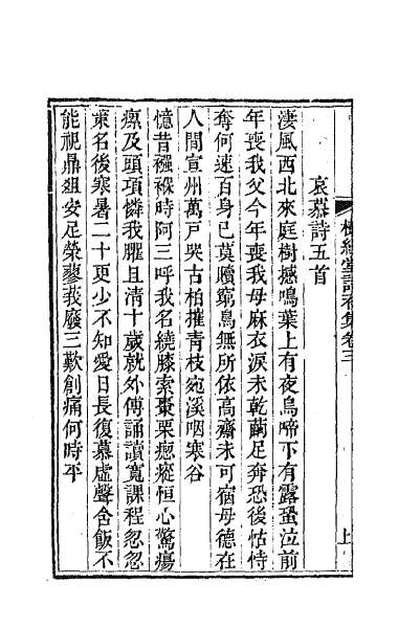 樹經堂詩初集卷三
上
哀慕詩五首
淒風西北來庭樹撼鳴葉上有夜烏啼下有露蛩泣前
年喪我父今年喪我母麻衣淚未乾繭足奔恐後怙恃
奪何速百身已莫贖窮鳥無所依高齋未可宿母德在
人間宣州萬戶哭古柏摧青枝宛溪咽寒谷
憶昔襁褓時阿三呼我名繞膝索棗栗瘛瘲恒心驚瘍
瘰及頭項憐我臞且清十歲就外傅誦讀寬課程忽忽
束名後寒暑二十更少不知愛日長復慕虛聲含飯不
能視鼎俎安足榮蓼莪廢三歎創痛何時平